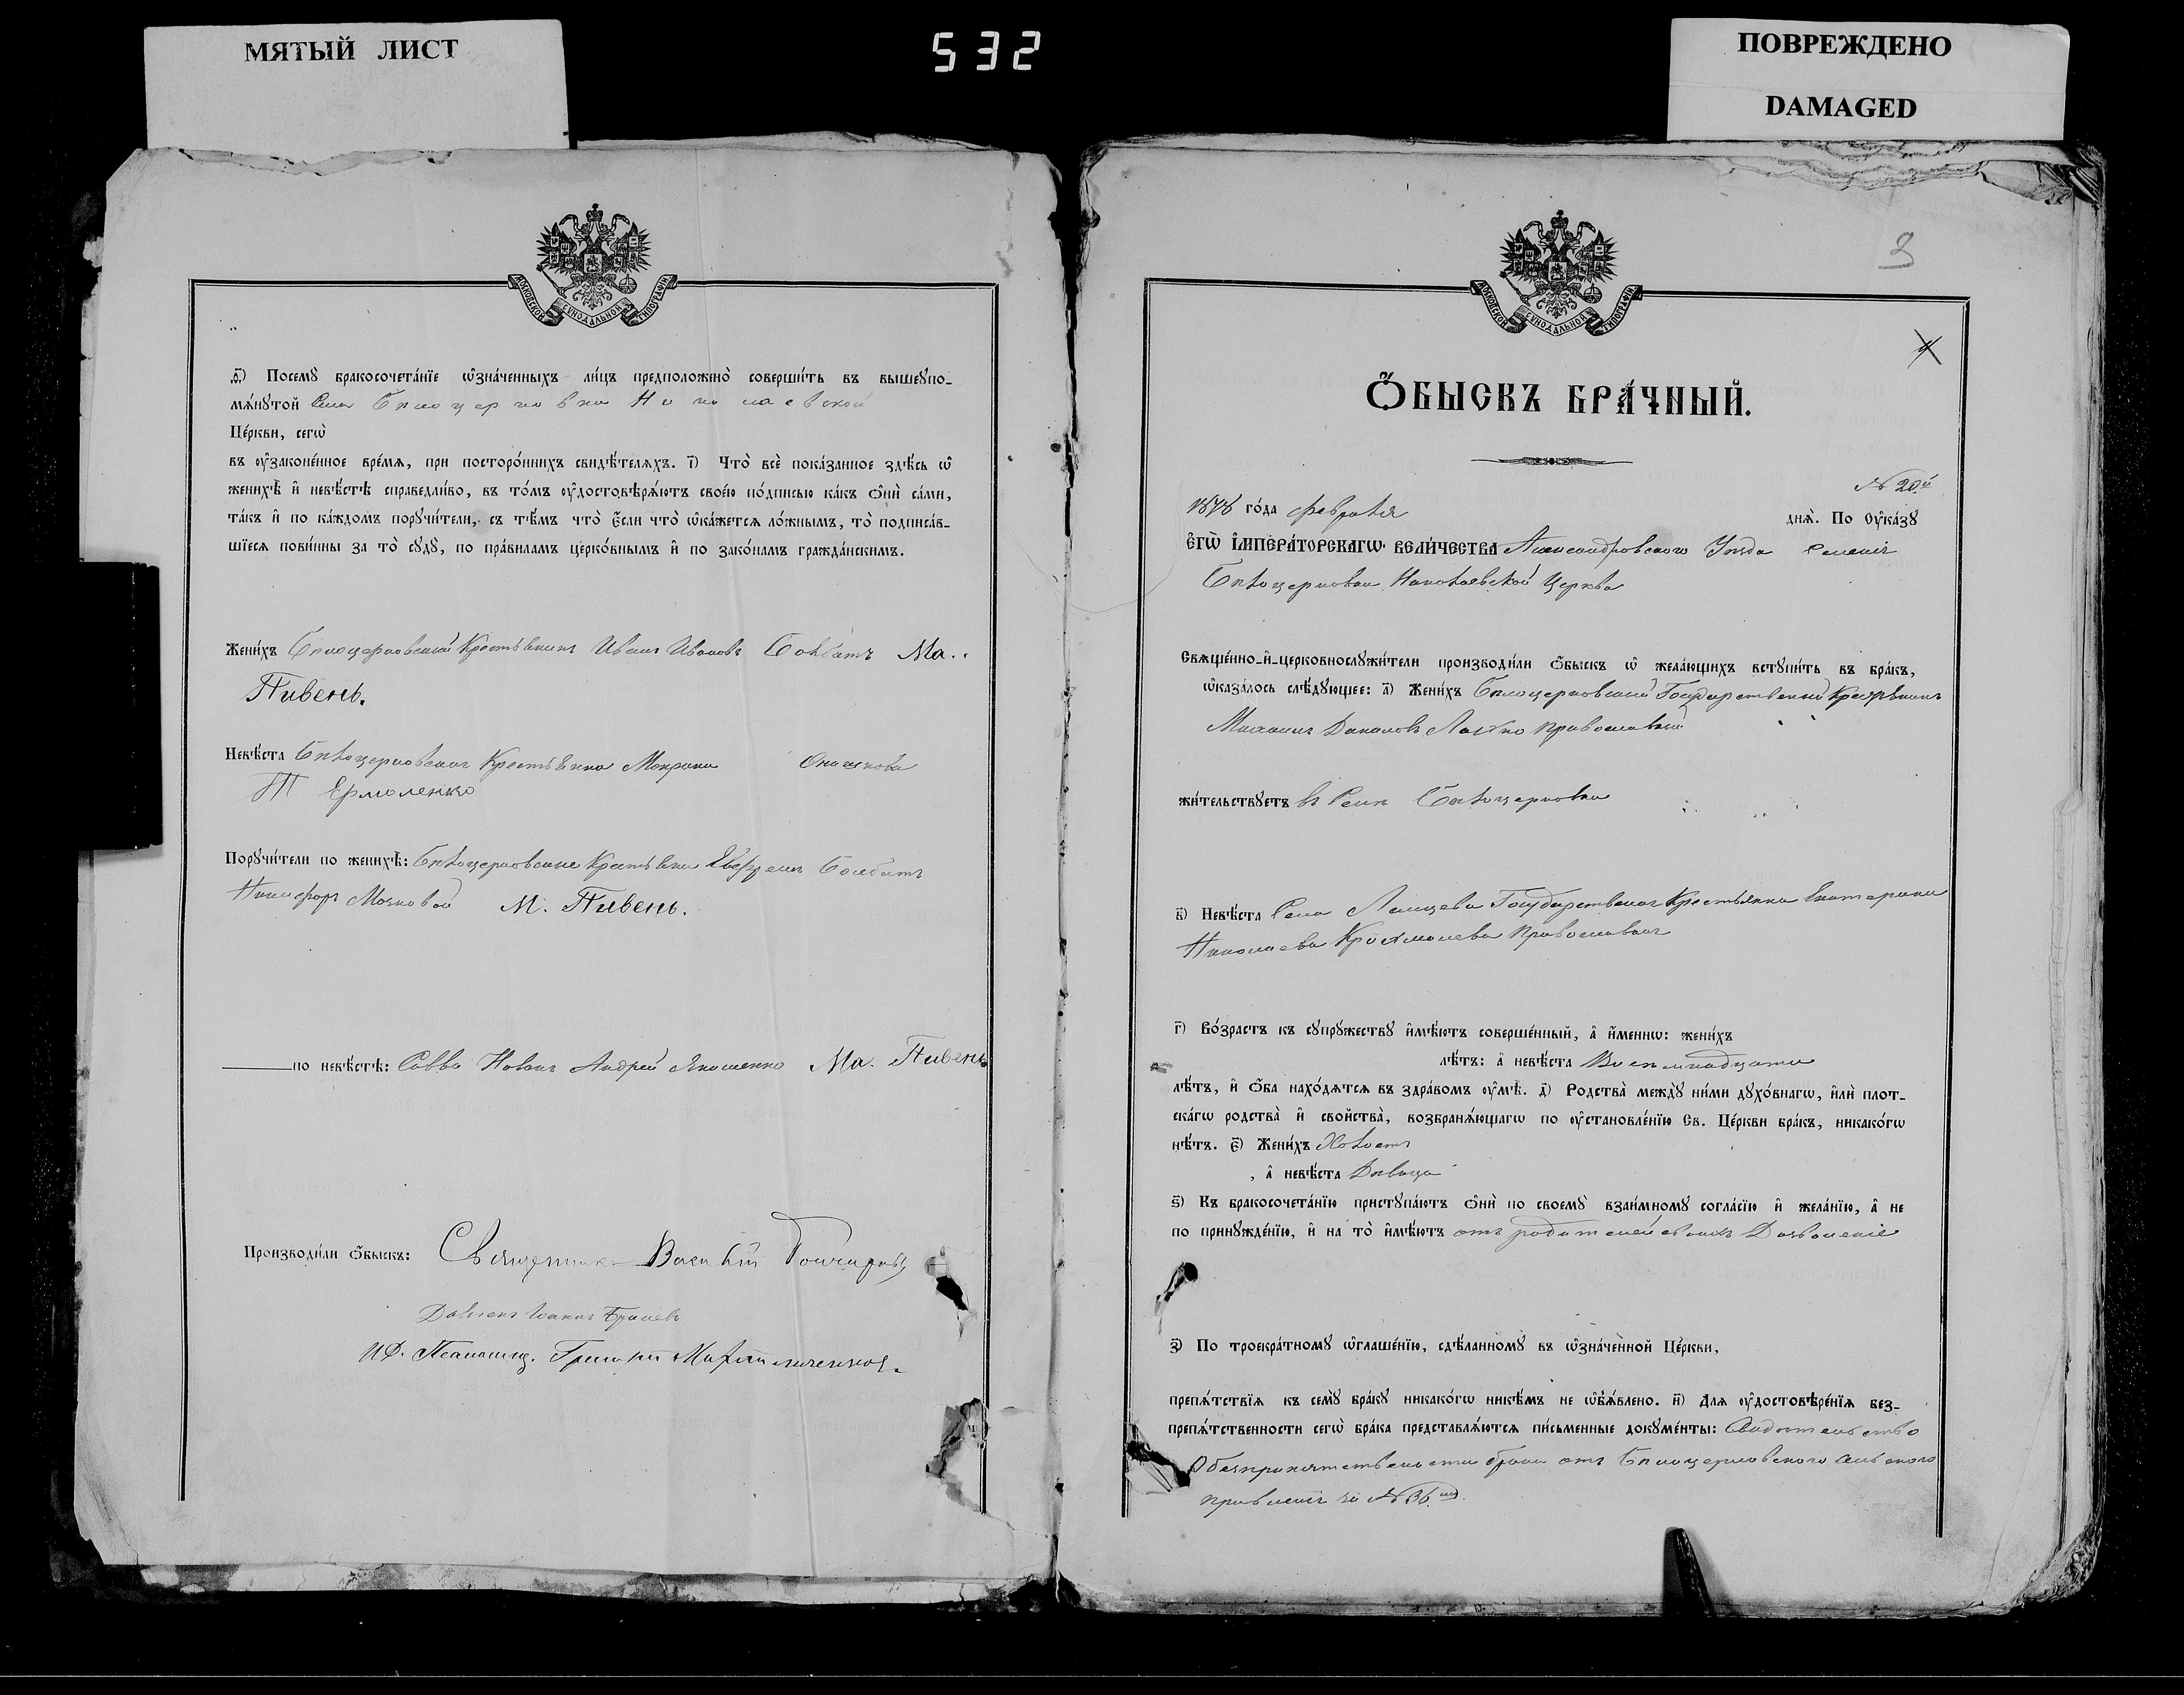 МЯТЫЙ ЛИСТ
532
ПОВРЕЖДЕНО
DAMAGED
МОСКОВСКОЙ СУНОДАЛЬНОЙ ТИПОГРАФІИ
д҃) Посемꙋ̀ бракосочета́нїе ѡ҆зна́ченныхъ ли́цъ предположено̀ соверши́ть въ вышеꙋпо-
мѧ́нꙋтой Села Бѣлоцерковки Николаевской
Це́ркви, сегѡ̀
въ ᲂу҆законе́нное вре́мѧ, при посторо́ннихъ свидѣ́телѧхъ. і҃) Что̀ всѐ пока́занное здѣ́сь ѡ҆
женихѣ̀ и҆ невѣ́стѣ справедли́во, въ то́мъ ᲂу҆достовѣрѧ́ютъ свое́ю по́дписью ка́къ ѻ҆нѝ са́ми,
та́къ и҆ по ка́ждомъ порꙋчи́тели, съ тѣ́мъ что̀ є҆́сли что̀ ѡ҆ка́жетсѧ ло́жнымъ, то̀ подписа́в-
шїесѧ пови́нны за то̀ сꙋдꙋ̀, по пра́виламъ церко́внымъ и҆ по зако́намъ гражда́нскимъ.
Жени́хъ Бѣлоцерковский Крестьянинъ Иванъ Ивановъ Солбатъ Ма..
Пивень.
Невѣ́ста Бѣлоцерковская Крестьянка Онашкова
П Ермоленко
Порꙋчи́тели по женихѣ̀: Бѣлоцерковские Крестьяне Ефремъ
Никифоръ М. Пивень.
по невѣ́стѣ: Савва Андрей Якименко Ма. Пивень
Производи́ли ѻ҆́быскъ: Священникъ Василій Гончаровъ
Діаконъ Іоаннъ
И.Д. Псаломщ. Григорій
3
4
МОСКОВСКОЙ СУНОДАЛЬНОЙ ТИПОГРАФІИ
Ѻ҆́БЫСКЪ БРА́ЧНЫЙ.
№ 20й
1878 го́да февраля днѧ̀. По Оу҆ка́зꙋ
Є҆ГѠ̀ І҆МПЕРА́ТОРСКАГѠ ВЕЛИ́ЧЕСТВА Александровского Уезда селенія
Бѣлоцерковки Николаевской Церкви
Свѧще́нно-и҆-церковнослꙋжи́тели производи́ли ѻ҆́быскъ ѡ҆ жела́ющихъ встꙋпи́ть въ бра́къ,
ѡ҆каза́лось слѣ́дꙋющее: а҃) Жени́хъ Бѣлоцерковский Государственный Крестьянинъ
Михаилъ Данановъ Лахно православный
жи́тельствꙋетъ въ Селѣ Бѣлоцерковки
в҃) Невѣ́ста Села Государственная Крестьянка Екатерина
Николаева Крохмалева Православная
г҃) Во́зрастъ къ сꙋпрꙋ́жествꙋ и҆мѣ́ютъ соверше́нный, а҆ и҆́менно: жени́хъ
лѣ́тъ: а҆ невѣ́ста Восемнадцати
лѣ́тъ, и҆ ѻ҆́ба нахо́дѧтсѧ въ здра́вомъ ᲂу҆мѣ̀. д҃) Родства̀ междꙋ̀ ни́ми дꙋхо́внагѡ, и҆лѝ плот-
ска́гѡ родства̀ и҆ сво́йства̀, возбранѧ́ющагѡ по ᲂу҆становле́нїю Св. Це́ркви бра́къ, никако́гѡ
нѣ́тъ. є҃) Жени́хъ Холостъ
, а҆ невѣ́ста Девица
ѕ҃) Къ бракосочета́нїю пристꙋпа́ютъ ѻ҆нѝ по своемꙋ̀ взаи́мномꙋ согла́сїю и҆ жела́нїю, а҆ не
по принꙋжде́нїю, и҆ на то̀ и҆мѣ́ютъ отъ родителей своихъ Дозволеніе
з҃) По троекра́тномꙋ ѡ҆глаше́нїю, сдѣ́ланномꙋ въ ѡ҆зна́ченной Це́ркви,
препѧ́тствїѧ къ семꙋ̀ бра́кꙋ никако́гѡ никѣ́мъ не ѡ҆бъѧ́влено. и҃) Длѧ ᲂу҆достовѣре́нїѧ без-
препѧ́тственности сегѡ̀ бра́ка представлѧ́ютсѧ пи́сьменные докꙋме́нты: Свидетельство
О безпрепятствености брака отъ Бѣлоцерковского сельского
правленія за № 36